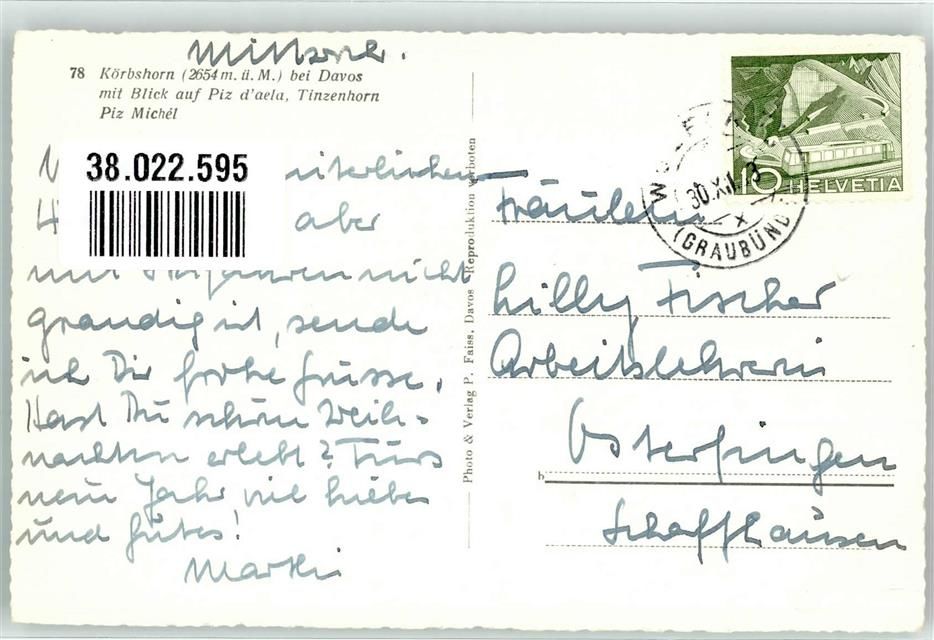 Mittwoch.
78 Körbshorn (2654 m. ü. M.) bei Davos
mit Blick auf Piz d'aela, Tinzenhorn
Piz Michél
38.022.595
aber
nicht
grandig ist, sende
ich Dir frohe Grüsse.
Hast Du schöne Weih-
nachten erlebt? Fürs
neue Jahr viel Liebes
und Gutes!
Photo & Verlag P. Faiss, Davos Reproduktion verboten
10 HELVETIA
30.XII
(GRAUBÜND
Fräulein
Lilly Fischer
Arbeitslehrerin
Osterfingen
Schaffhausen